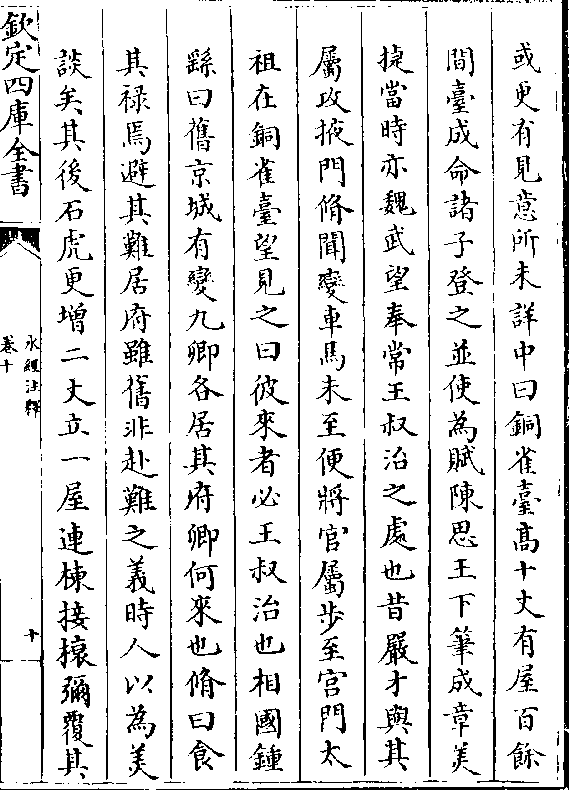 或更有見意所未詳中曰銅雀臺髙十丈有屋百餘
間臺成命諸子登之並使為賦陳思王下筆成章美
捷當時亦魏武望奉常王叔治之處也昔嚴才與其
屬攻掖門脩聞變車馬未至便將官屬步至宮門太
祖在銅雀臺望見之曰彼來者必王叔治也相國鍾
繇曰舊京城有變九卿各居其府卿何來也脩曰食
其禄焉避其難居府雖舊非赴難之義時人以為美
談矣其後石虎更增二丈立一屋連棟接榱彌覆其
欽定四庫全書
水經注釋
卷十
十